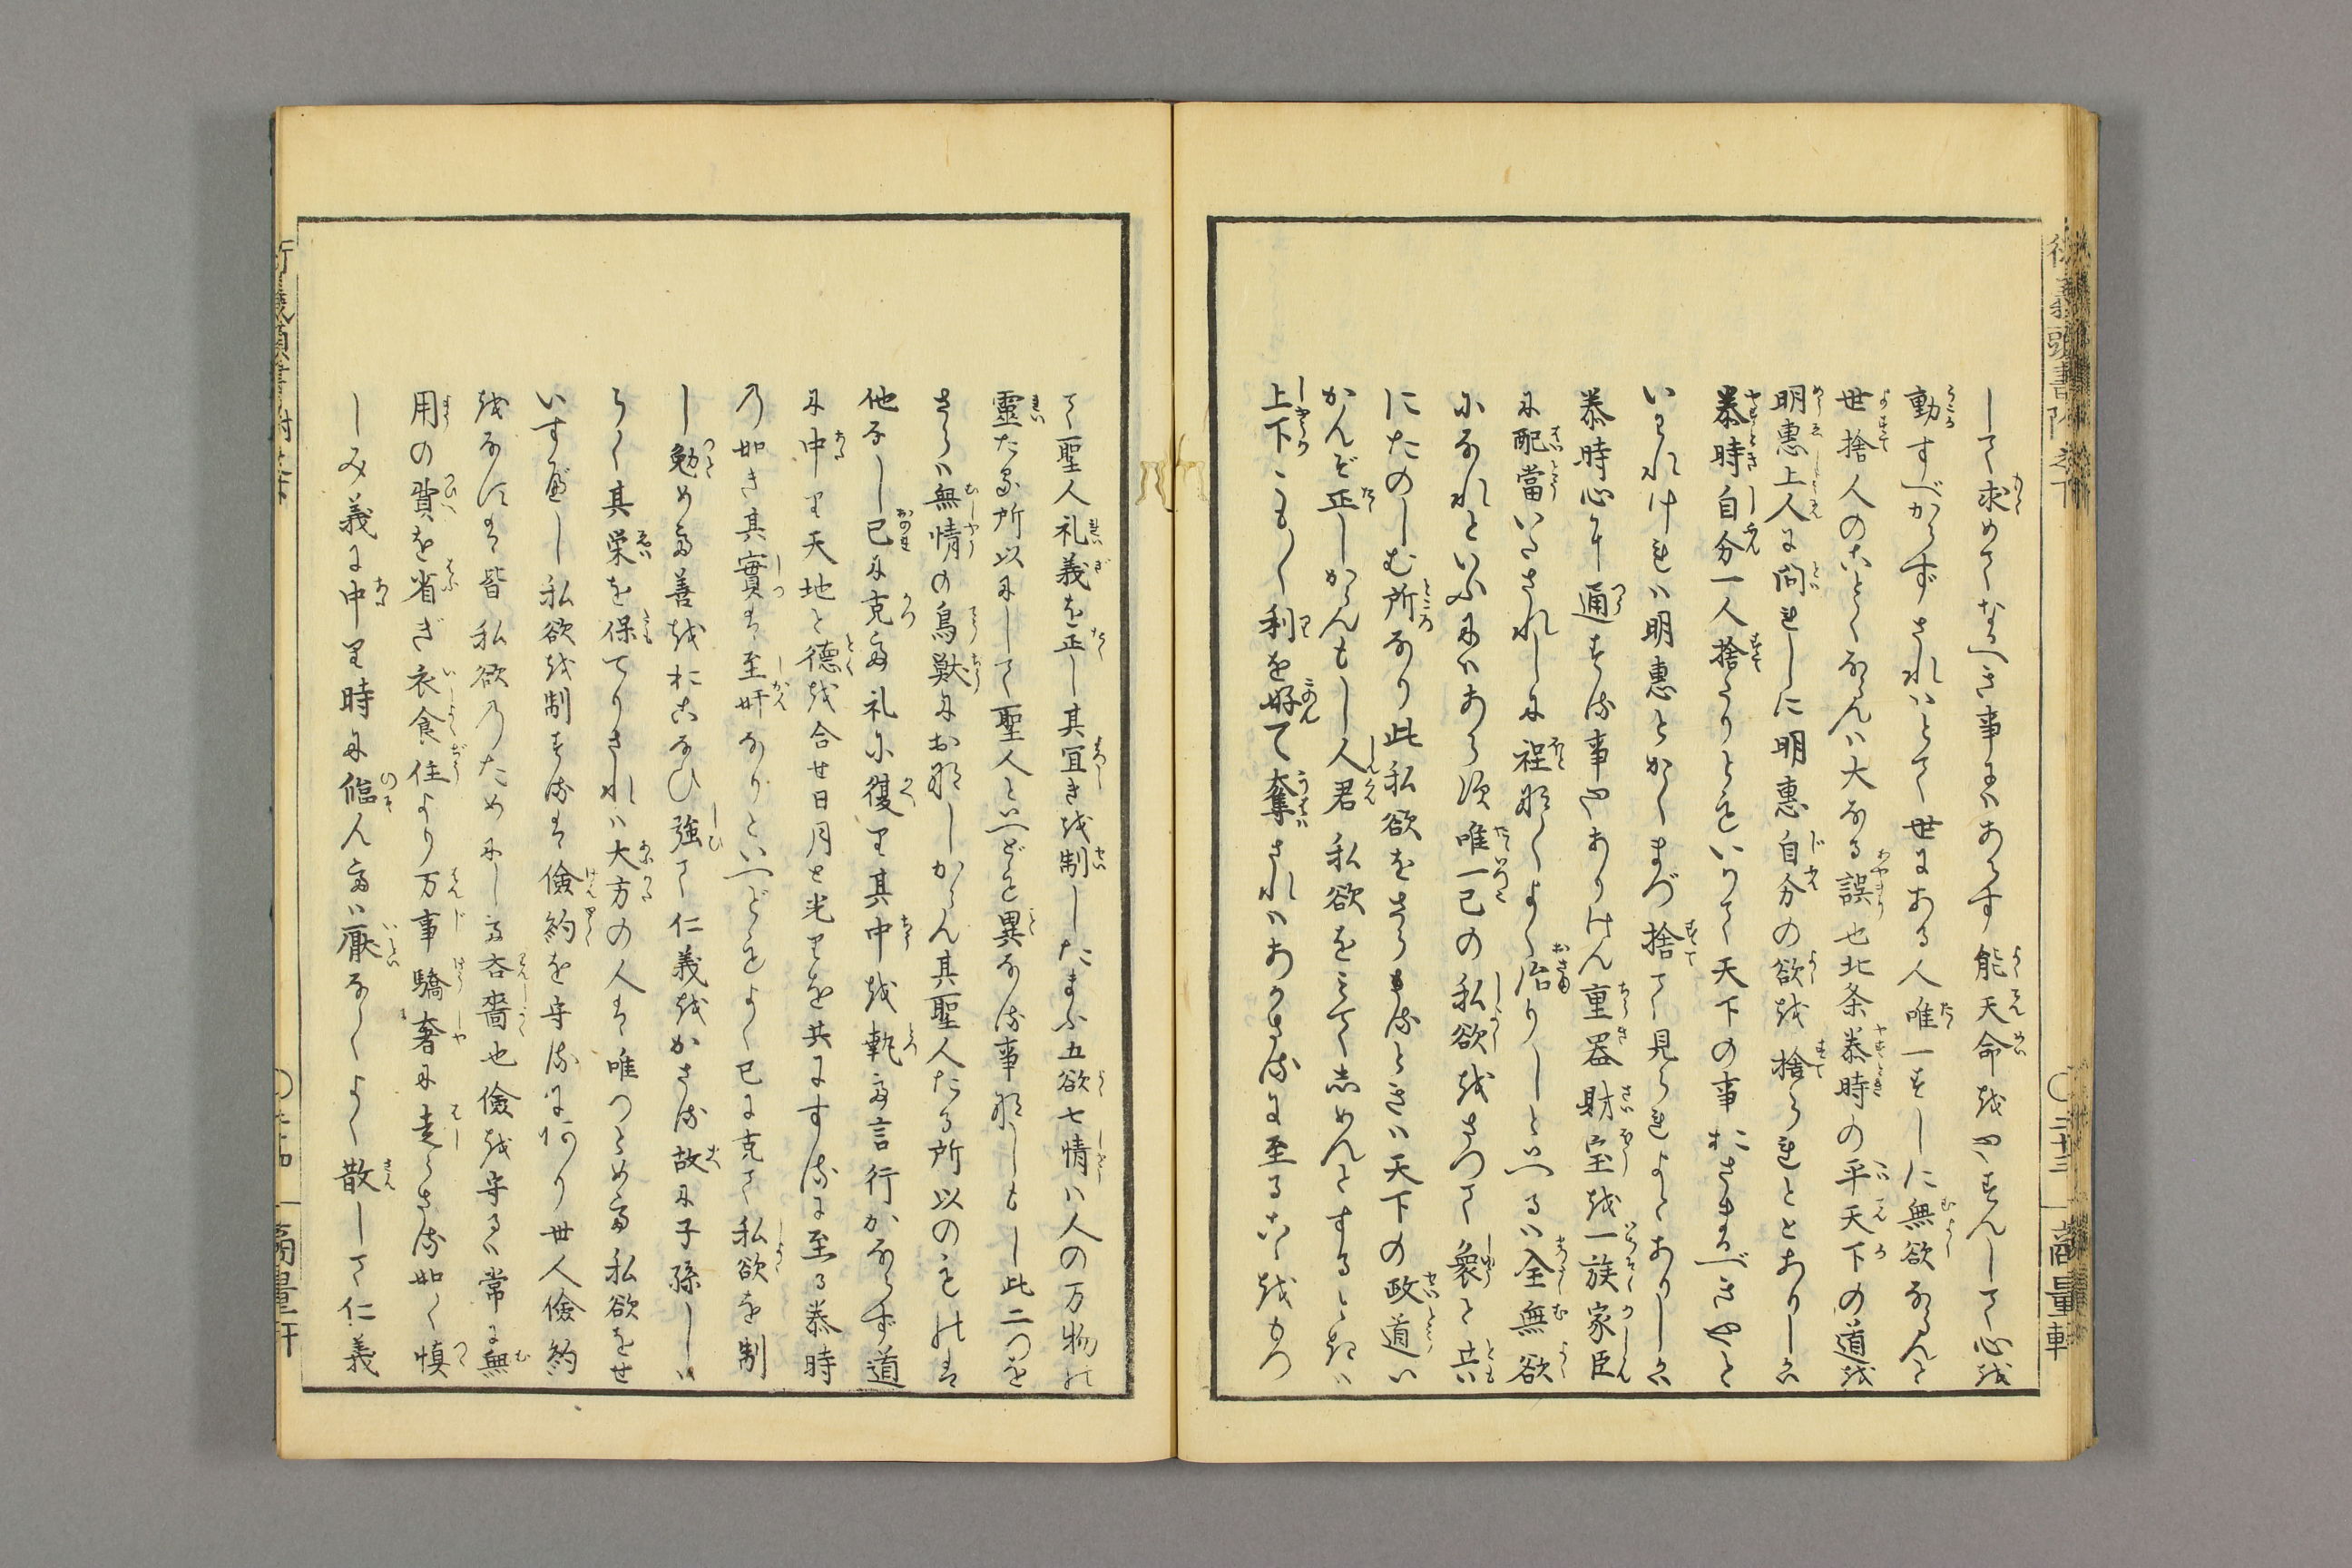 して求めてなすべき事にはあらす能天命をやすんして心を
動すべからずされはとて世にある人唯一すしに無欲ならんと
世捨人のことくならんは大なる誤也北条泰時の平天下の道を
明惠上人に問れしに明惠自分の欲を捨られとありしかは
泰時自分一人捨たりともいかて天下の事おさまるべきやと
いわれけれは明惠とかくまづ捨て見られよとありしかは
泰時心に通する事やありけん重器財宝を一族家臣
に配當いたされしに程なくよく治りしといへるは全無欲
になれといふにはあらす唯一己の私欲をさつて衆と共
にたのしむ所なり此私欲をさらさるときは天下の政道い
かんぞ正しからんもし人君私欲を以て志めんとするときは
上下こも〱利を好て奪されはあかさるに至ることをもつ
て聖人礼義を正し其宜きを制したまふ五欲七情は人の万物の
霊たる所以にして聖人といへども異なる事なしもし此二つを
さらは無情の鳥獣におなしからん其聖人たる所以のものは
他なし已に克て礼に復り其中を執て言行かならず道
に中り天地と徳を合せ日月と光りを共にするに至る泰時
の如き其實は至奸なりといへどもよく已に克て私欲を制
し勉めて善をおこなひ強て仁義をかさる故に子孫しはら
らく其栄を保てりされは大方の人は唯つとめて私欲をせ
いすべし私欲を制するは儉約を守るにあり世人儉約
をなすは皆私欲のためにして吝嗇也儉を守るは常に無
用の費を省ぎ衣食住より万事驕奢に走らさる如く慎
しみ義に中り時に臨んては厭なくよく散して仁義